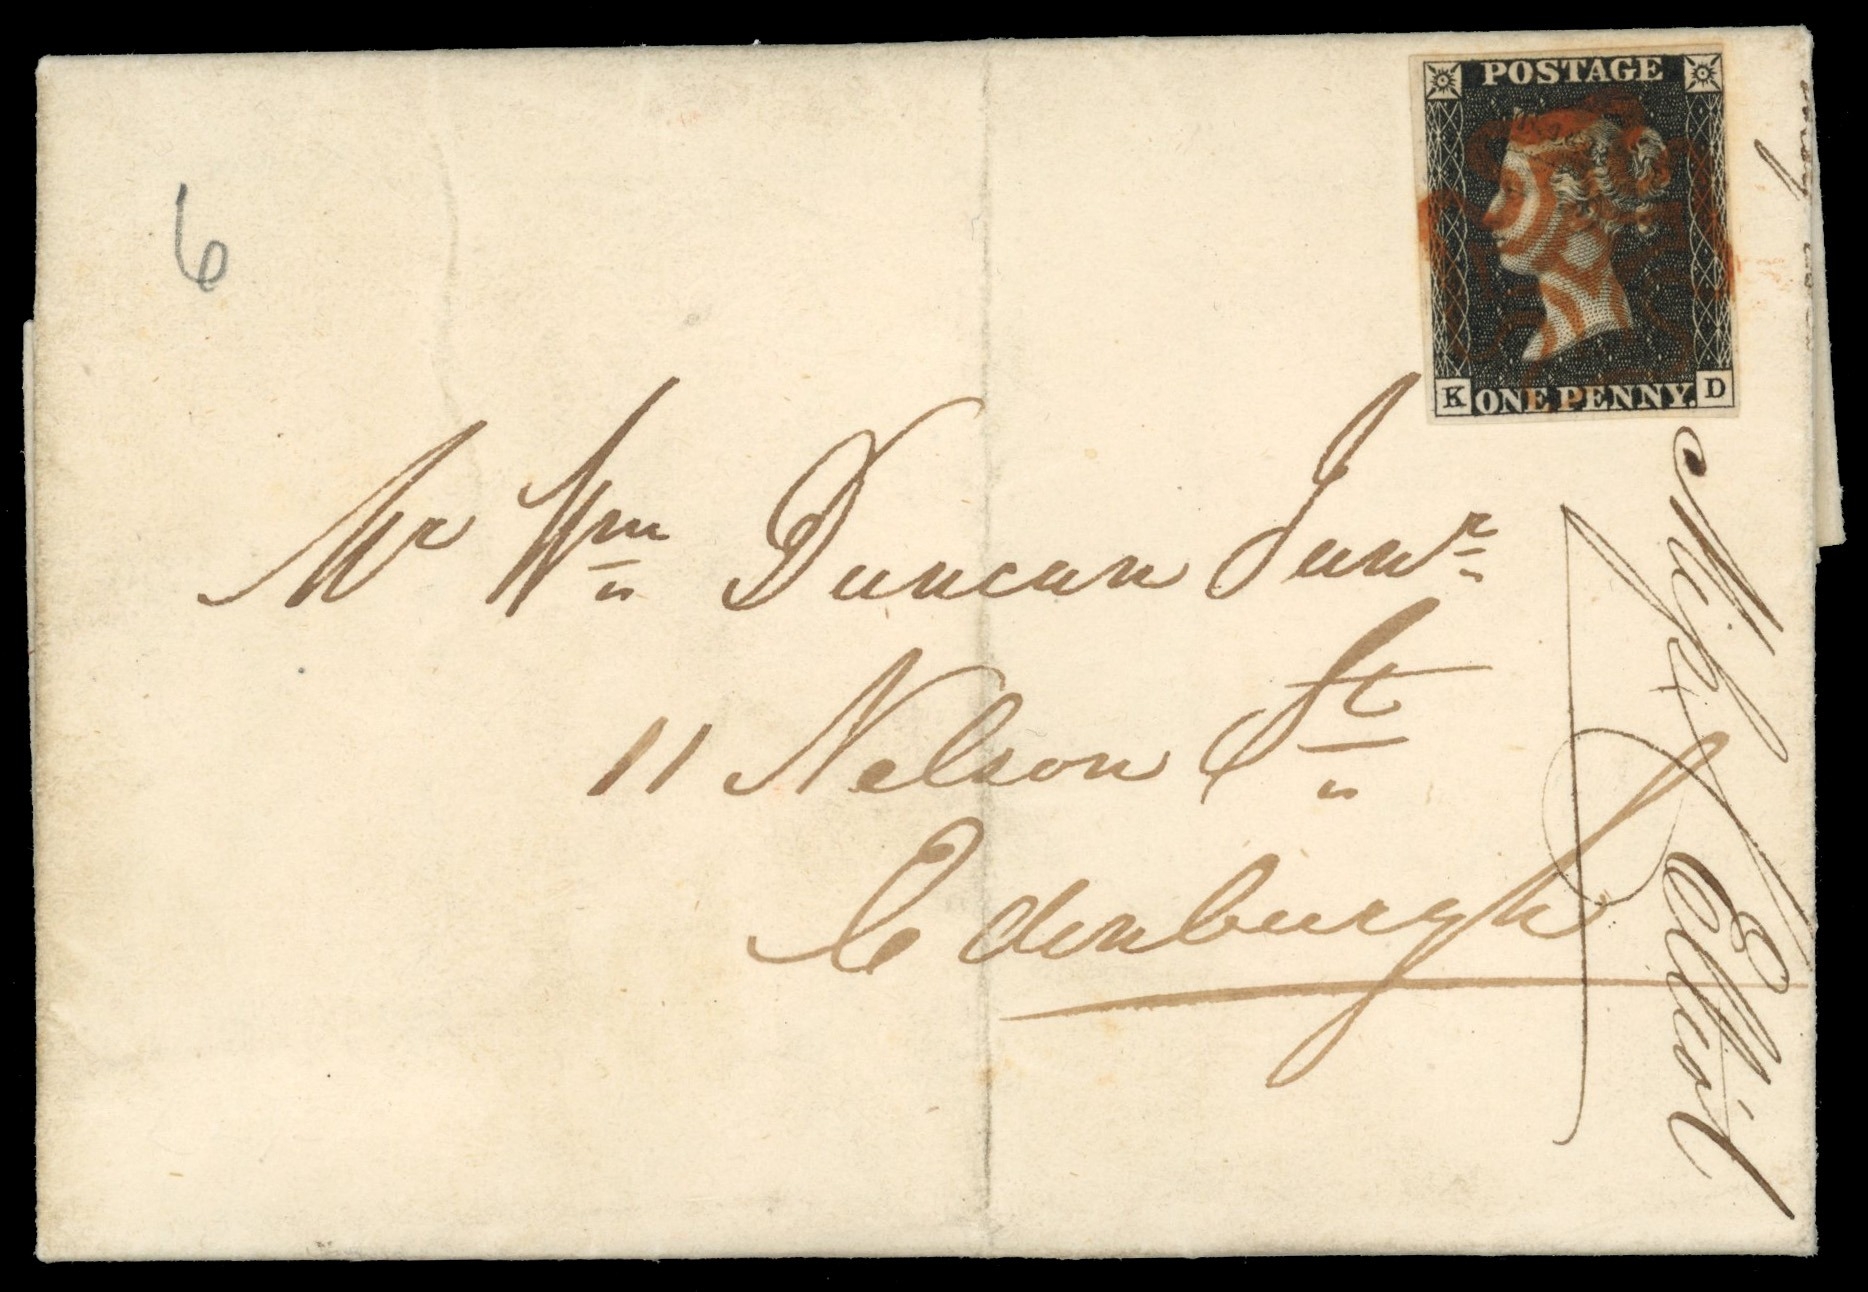 6
POSTAGE
K ONE PENNY. D
Mr Wm Duncan Junr
11 Nelson St
Edenburgh
Miss Elliot